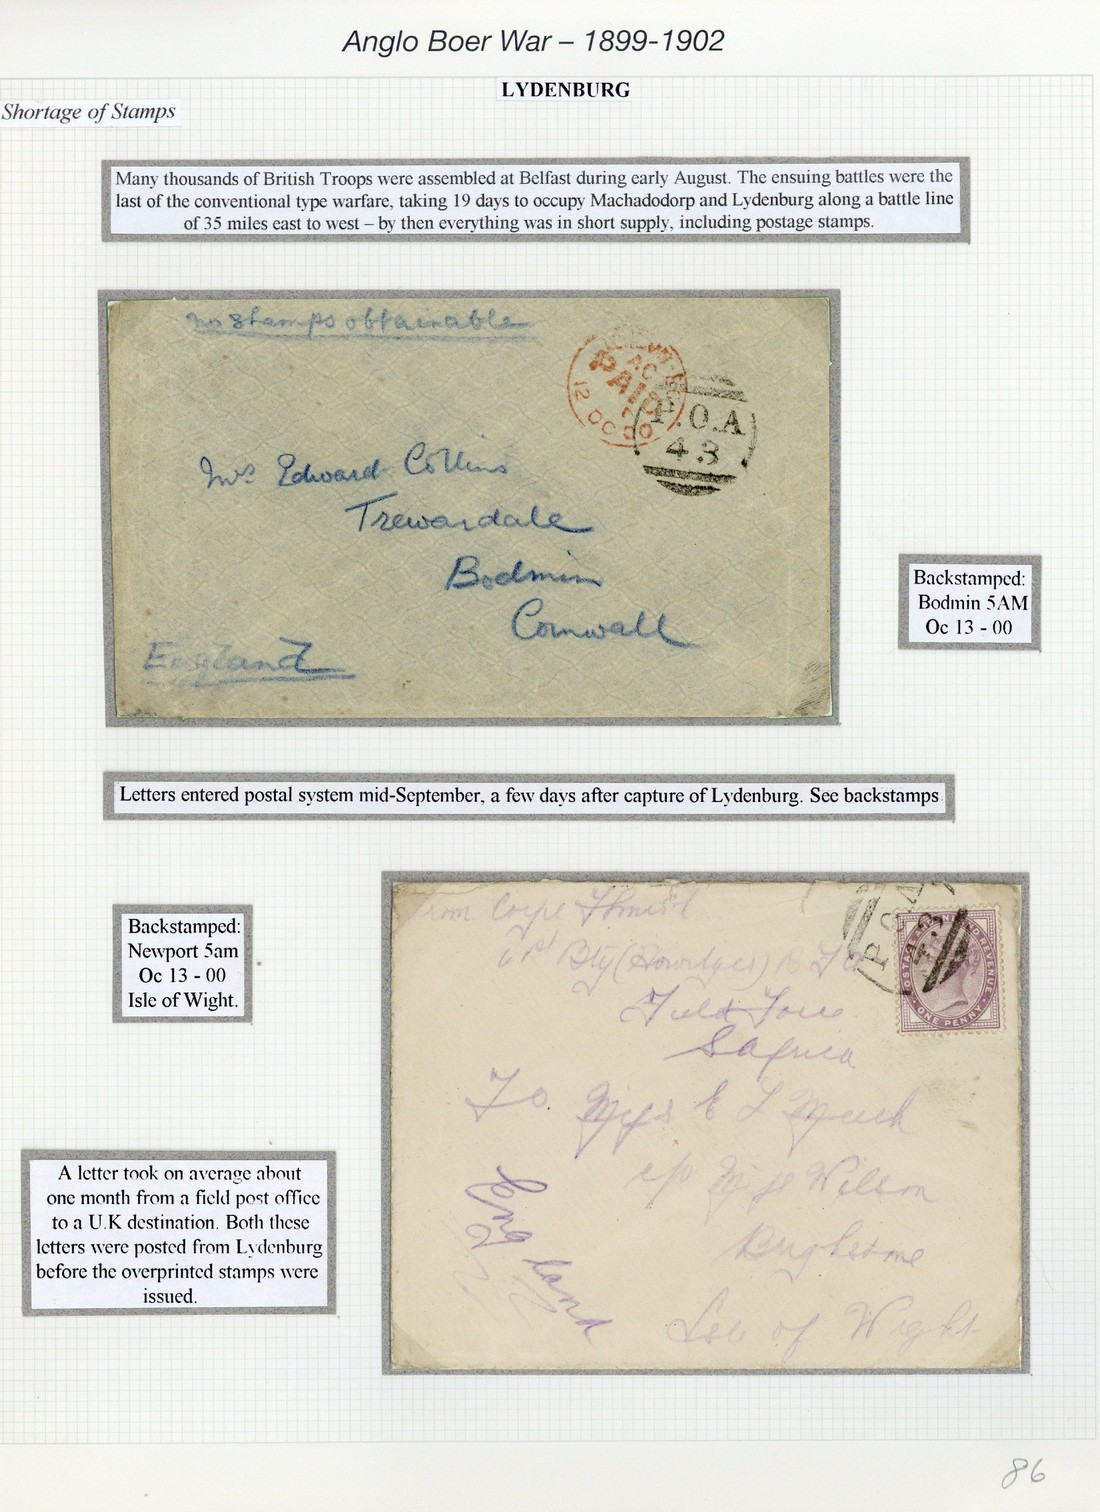 Anglo Boer War – 1899-1902
LYDENBURG
Shortage of Stamps
Many thousands of British Troops were assembled at Belfast during early August. The ensuing battles were the
last of the conventional type warfare, taking 19 days to occupy Machadodorp and Lydenburg along a battle line
of 35 miles east to west – by then everything was in short supply, including postage stamps.
no stamps obtainable
PAID
12 OC 00
P.O.A
43
Mrs Edward Collins
Trewardale
Bodmin
Cornwall
England
Backstamped:
Bodmin 5AM
Oc 13 - 00
Letters entered postal system mid-September, a few days after capture of Lydenburg. See backstamps
Backstamped:
Newport 5am
Oc 13 - 00
Isle of Wight.
From
Bty (Howitzers)
Field Force
S Africa
POSTAGE AND REVENUE
ONE PENNY
To Miss E L
c/o Miss Wilson
Isle of Wight
England
A letter took on average about
one month from a field post office
to a U.K destination. Both these
letters were posted from Lydenburg
before the overprinted stamps were
issued.
86